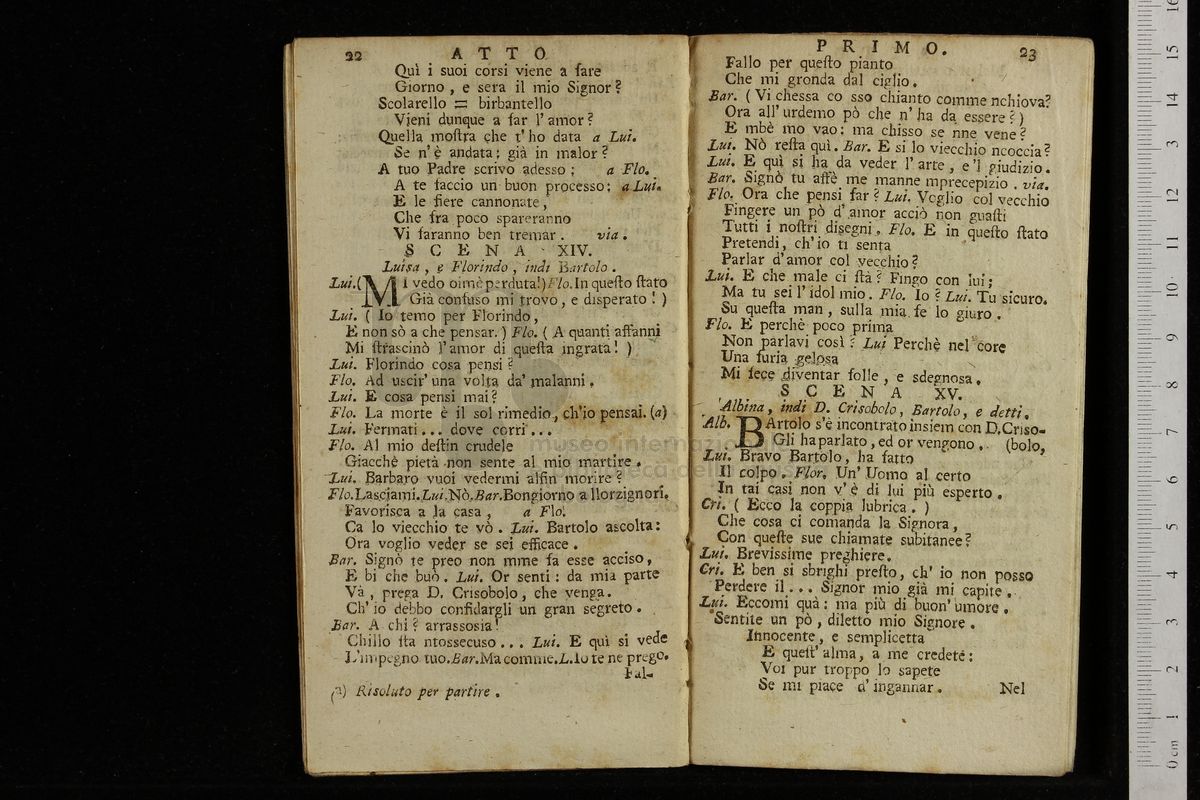 22 ATTO
Quì i suoi corsi viene a fare
Giorno , e sera il mio Signor ?
Scolarello = birbantello
Vieni dunque a far l' amor ?
Quella moſtra che t' ho data a Lui.
Se n' è andata ; già in malor ?
A tuo Padre scrivo adesso ; a Flo.
A te faccio un buon processo ; a Lui.
E le fiere cannonate ,
Che fra poco spareranno
Vi faranno ben tremar . via .
SCENA XIV.
Luisa , e Florindo , indi Bartolo .
Lui.( MI vedo oimè perduta!) Flo. In queſto ſtato
Già confuso mi trovo , e disperato ! )
Lui. ( Io temo per Florindo ,
E non sò a che pensar. ) Flo. ( A quanti affanni
Mi ſtrascinò l' amor di queſta ingrata ! )
Lui. Florindo cosa pensi ?
Flo. Ad uscir' una volta da' malanni .
Lui. E cosa pensi mai ?
Flo. La morte è il sol rimedio , ch'io pensai. (a)
Lui. Fermati ... dove corri ...
Flo. Al mio deſtin crudele
Giacchè pietà non sente al mio martire .
Lui. Barbaro vuoi vedermi alfin morire ?
Flo. Lasciami. Lui. Nò. Bar. Bongiorno a llorzignori.
Favorisca a la casa , a Flo.
Ca lo viecchio te vò . Lui. Bartolo ascolta :
Ora voglio veder se sei efficace .
Bar. Signò te preo non mme fa esse acciso ,
E bi che buò . Lui. Or senti : da mia parte
Và , prega D. Crisobolo , che venga.
Ch' io debbo confidargli un gran segreto .
Bar. A chi ? arrassosia !
Chillo ſta ntossecuso ... Lui. E quì si vede
L'impegno tuo. Bar. Ma comme. L. Io te ne prego.
Fal-
(a) Risoluto per partire .
PRIMO. 23
Fallo per queſto pianto
Che mi gronda dal ciglio .
Bar. ( Vi chessa co sso chianto comme nchiova?
Ora all' urdemo pò che n' ha da essere ? )
E mbè mo vao : ma chisso se nne vene ?
Lui. Nò reſta quì . Bar. E si lo viecchio ncoccia ?
Lui. E quì si ha da veder l' arte , e 'l giudizio .
Bar. Signò tu affè me manne mprecepizio . via.
Flo. Ora che pensi far ? Lui. Voglio col vecchio
Fingere un pò d' amor acciò non guaſti
Tutti i noſtri disegni . Flo. E in queſto ſtato
Pretendi , ch' io ti senta
Parlar d' amor col vecchio ?
Lui. E che male ci ſtà ? Fingo con lui ;
Ma tu sei l' idol mio . Flo. Io ? Lui. Tu sicuro.
Su queſta man , sulla mia fe lo giuro .
Flo. E perchè poco prima
Non parlavi così ? Lui Perchè nel core
Una furia gelosa
Mi fece diventar folle , e sdegnosa .
SCENA XV.
Albina , indi D. Crisobolo , Bartolo , e detti .
Alb. BArtolo s'è incontrato insiem con D. Criso-
Gli ha parlato , ed or vengono . (bolo,
Lui. Bravo Bartolo , ha fatto
Il colpo . Flor. Un' Uomo al certo
In tai casi non v' è di lui più esperto .
Cri. ( Ecco la coppia lubrica . )
Che cosa ci comanda la Signora ,
Con queſte sue chiamate subitanee ?
Lui. Brevissime preghiere.
Cri. E ben si sbrighi preſto , ch' io non posso
Perdere il ... Signor mio già mi capite .
Lui. Eccomi quà : ma più di buon' umore .
Sentite un pò , diletto mio Signore .
Innocente , e semplicetta
E queſt' alma , a me credete :
Voi pur troppo lo sapete
Se mi piace d' ingannar . Nel